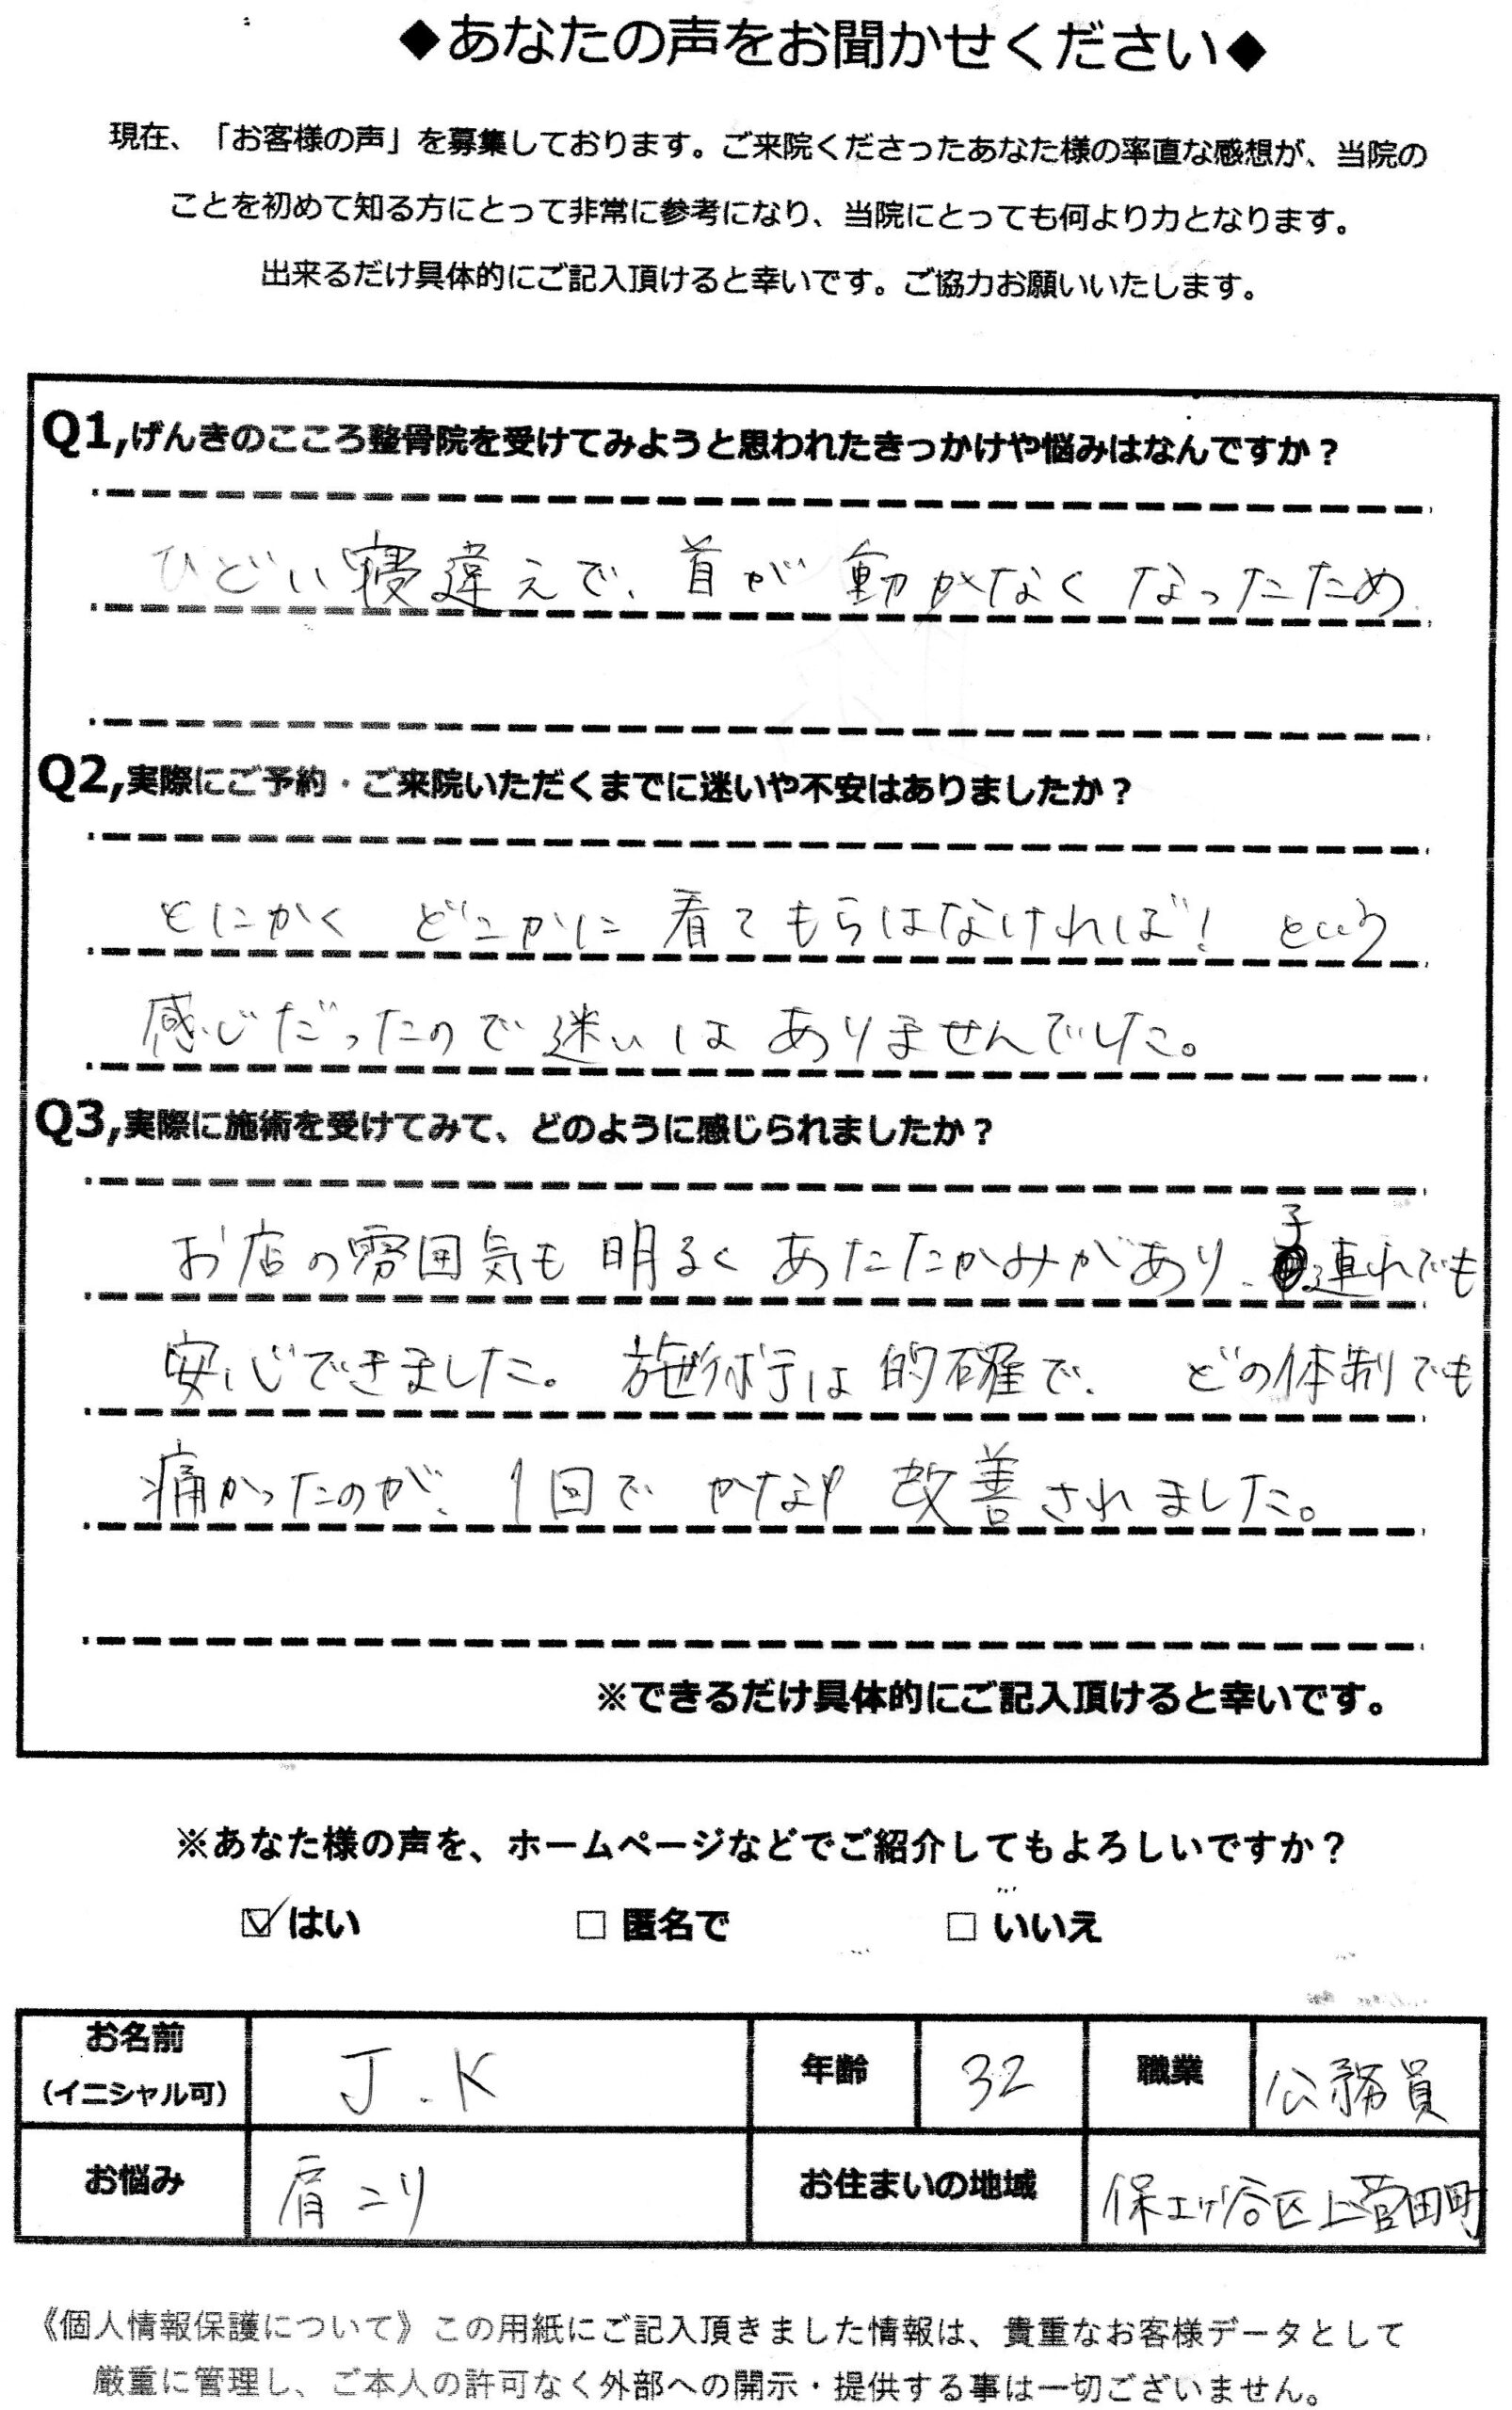 ◆あなたの声をお聞かせください◆
現在、「お客様の声」を募集しております。ご来院くださったあなた様の率直な感想が、当院の
ことを初めて知る方にとって非常に参考になり、当院にとっても何より力となります。
出来るだけ具体的にご記入頂けると幸いです。ご協力お願いいたします。
Q1,げんきのこころ整骨院を受けてみようと思われたきっかけや悩みはなんですか？
ひどい寝違えで、首が動かなくなったため
Q2,実際にご予約・ご来院いただくまでに迷いや不安はありましたか？
とにかく どこかに看てもらはなければ！ という
感じだったので迷いはありませんでした。
Q3,実際に施術を受けてみて、どのように感じられましたか？
お店の雰囲気も明るくあたたかみがあり、子連れでも
安心できました。施術は的確で、どの体制でも
痛かったのが、1回でかなり改善されました。
※できるだけ具体的にご記入頂けると幸いです。
※あなた様の声を、ホームページなどでご紹介してもよろしいですか？
☑はい □匿名で □いいえ
お名前
（イニシャル可） J.K 年齢 32 職業 公務員
お悩み 肩こり お住まいの地域 保土ヶ谷区上菅田町
《個人情報保護について》この用紙にご記入頂きました情報は、貴重なお客様データとして
厳重に管理し、ご本人の許可なく外部への開示・提供する事は一切ございません。